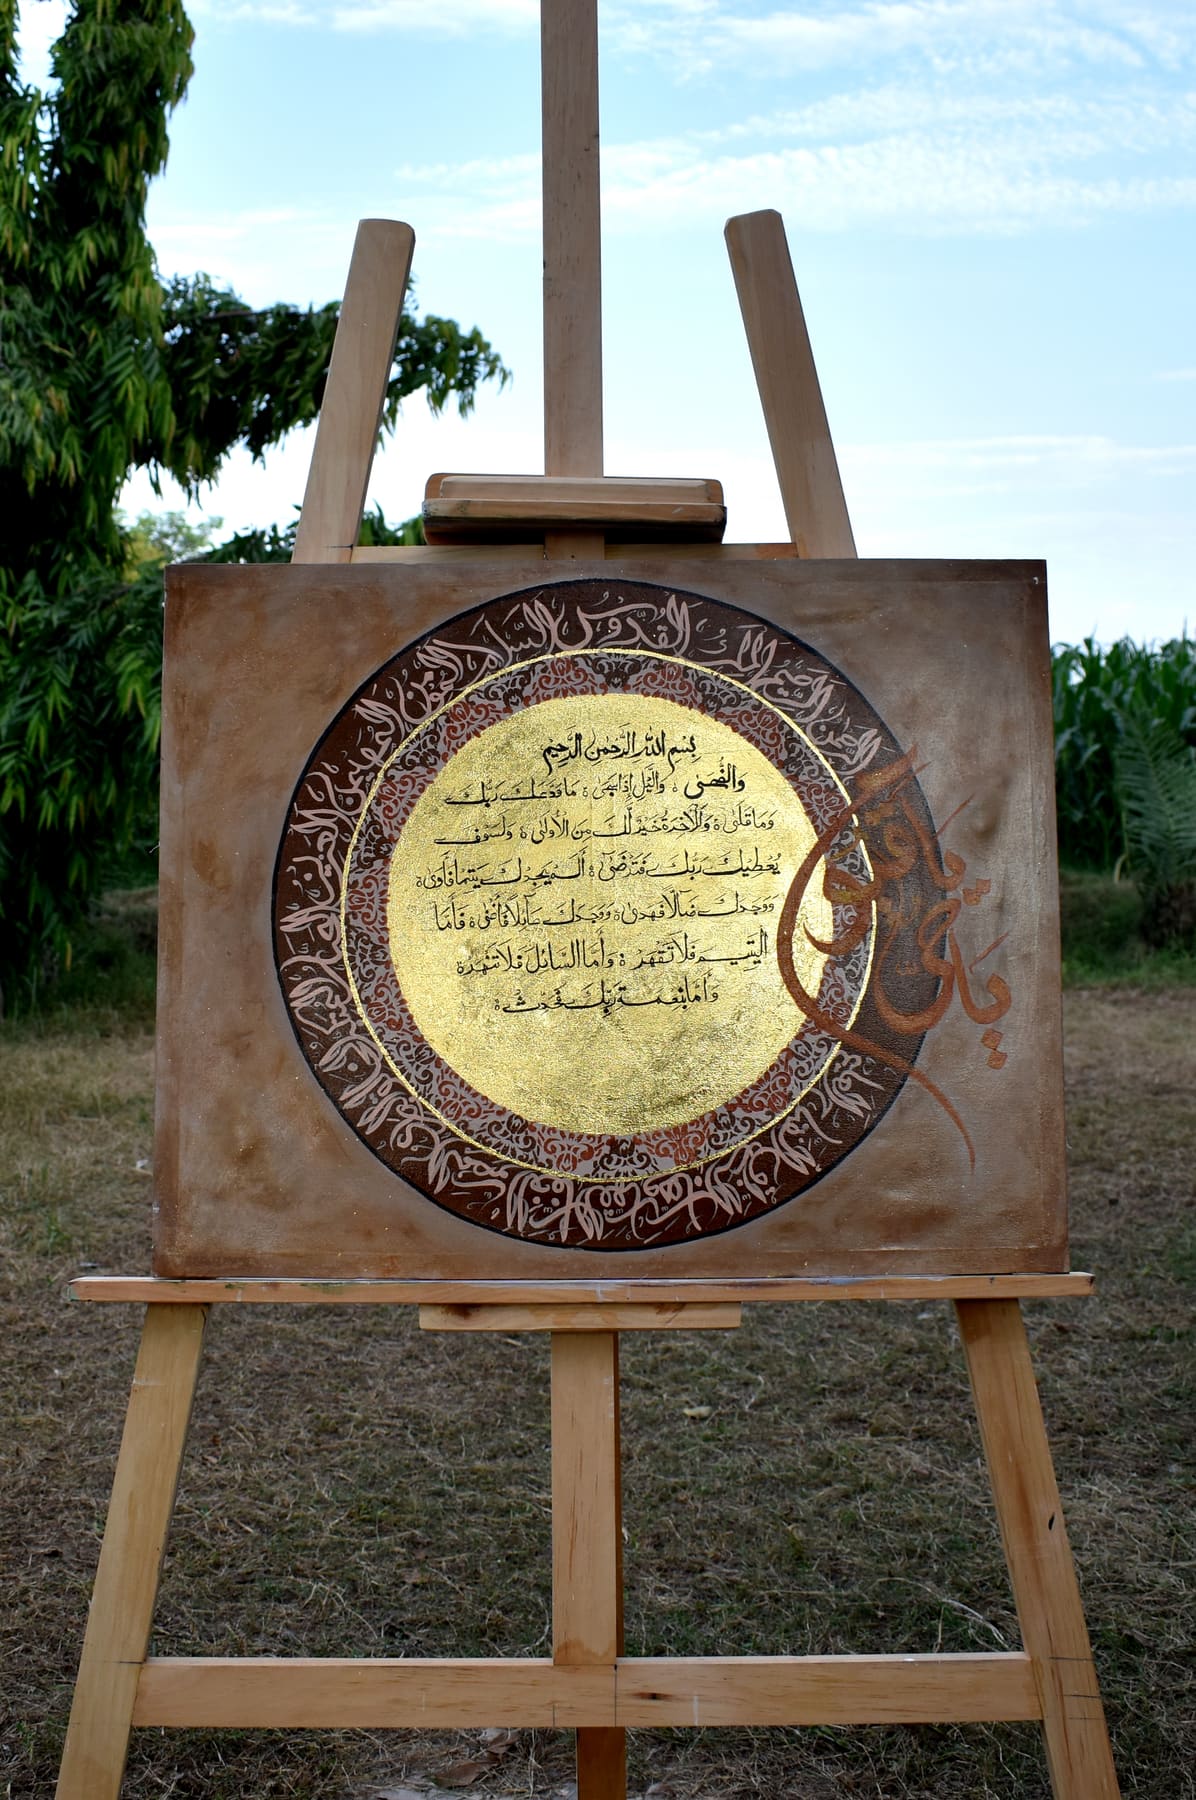 بِسْمِ اللهِ الرَّحْمٰنِ الرَّحِيْمِ
وَالضُّحٰى ۝ وَالَّيْلِ اِذَا سَجٰى ۝ مَا وَدَّعَكَ رَبُّكَ
وَمَا قَلٰى ۝ وَلَلْاٰخِرَةُ خَيْرٌ لَّكَ مِنَ الْاُوْلٰى ۝ وَلَسَوْفَ
يُعْطِيْكَ رَبُّكَ فَتَرْضٰى ۝ اَلَمْ يَجِدْكَ يَتِيْمًا فَاٰوٰى ۝
وَوَجَدَكَ ضَآلًّا فَهَدٰى ۝ وَوَجَدَكَ عَآئِلًا فَاَغْنٰى ۝ فَاَمَّا
الْيَتِيْمَ فَلَا تَقْهَرْ ۝ وَاَمَّا السَّآئِلَ فَلَا تَنْهَرْ ۝
وَاَمَّا بِنِعْمَةِ رَبِّكَ فَحَدِّثْ ۝
الرحمن الرحيم الملك القدوس السلام المؤمن المهيمن العزيز الجبار
يا حي يا قيوم